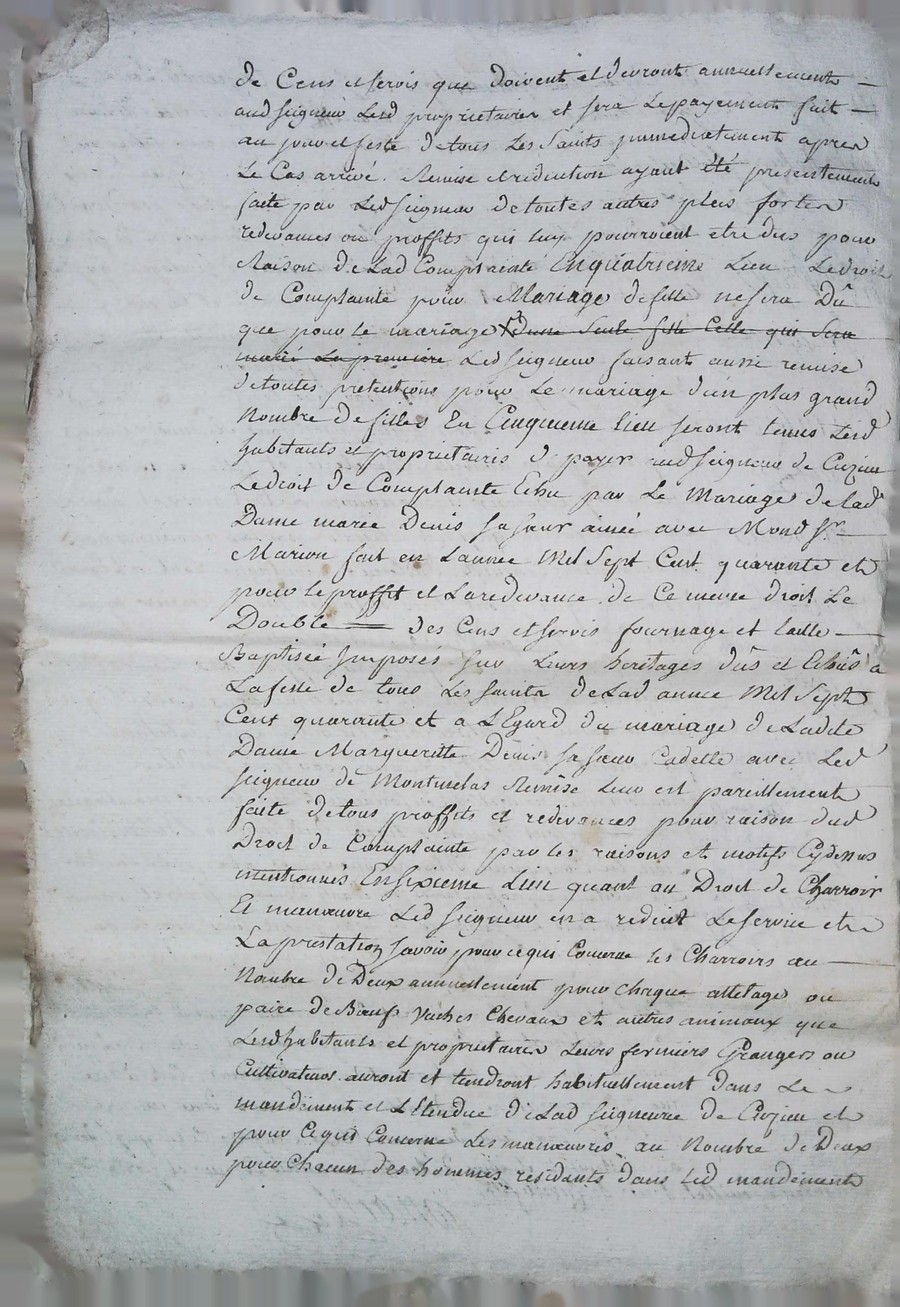 de Cens et servis que doivent et devront annuellement —
aud seigneur Lesd proprietaires et sera Lepayement fait —
au jour et feste detous Les Saints jmmediatement apres
Le Cas arrivé. Remise et reduction ayant été presentement
faite par Led seigneur detoutes autres plus fortes
redevances ou proffits qui luy pourroient etre dus pour
Raison de Lad Complainte Enquatrieme Lieu Le droit
de Complainte pour Mariage de fille nesera Dû
que pour le mariage dune Seule fille Celle qui Sera
marié La premiere Led seigneur faisant aussi remise
detoutes pretentions pour Le mariage d'un plus grand
Nombre de filles En Cinquieme lieu seront tenus Lesd
habitants et proprietaires d payer aud seigneur de Cuzieu
Ledroit de Complainte Echu par Le Mariage de lad
Dame marie Denis sa sœur ainée avec Mond Sr —
Marion fait en L'année Mil Sept Cent quarante et
pour le proffit et La redevance de Ce meme droit Le
Double — des Cens et servis fournage et taille —
Baptisée jmposés sur Leurs heritages dûs et Echûs a
La feste de tous Les saints de Lad année Mil Sept
Cent quarante et a L'Egard du mariage de Ladite
Dame Margueritte Denis sa sœur Cadette avec Led
seigneur de Montmelas Remise Leur est pareillement
faite detous proffits et redevances pour raison dud
Droit de Complainte par les raisons et motifs Cydessus
mentionnés En sixieme Lieu quant au Droit de Charroir
Et manœuvre Led seigneur en a reduit Le service et
La prestation savoir pour ce qui Concerne les Charroirs au —
Nombre de Deux annuellement pour chaque attelage ou
paire de Bœufs Vaches Chevaux et autres animaux que
Lesd habitants et proprietaires Leurs fermiers Grangers ou
Cultivateurs auront et tiendront habituellement dans Le
mandement et L'Etendue de Lad seigneurie de Cuzieu et
pour Ce qui Concerne Les manœuvres au Nombre de Deux
pour Chacun des hommes residants dans Led mandement